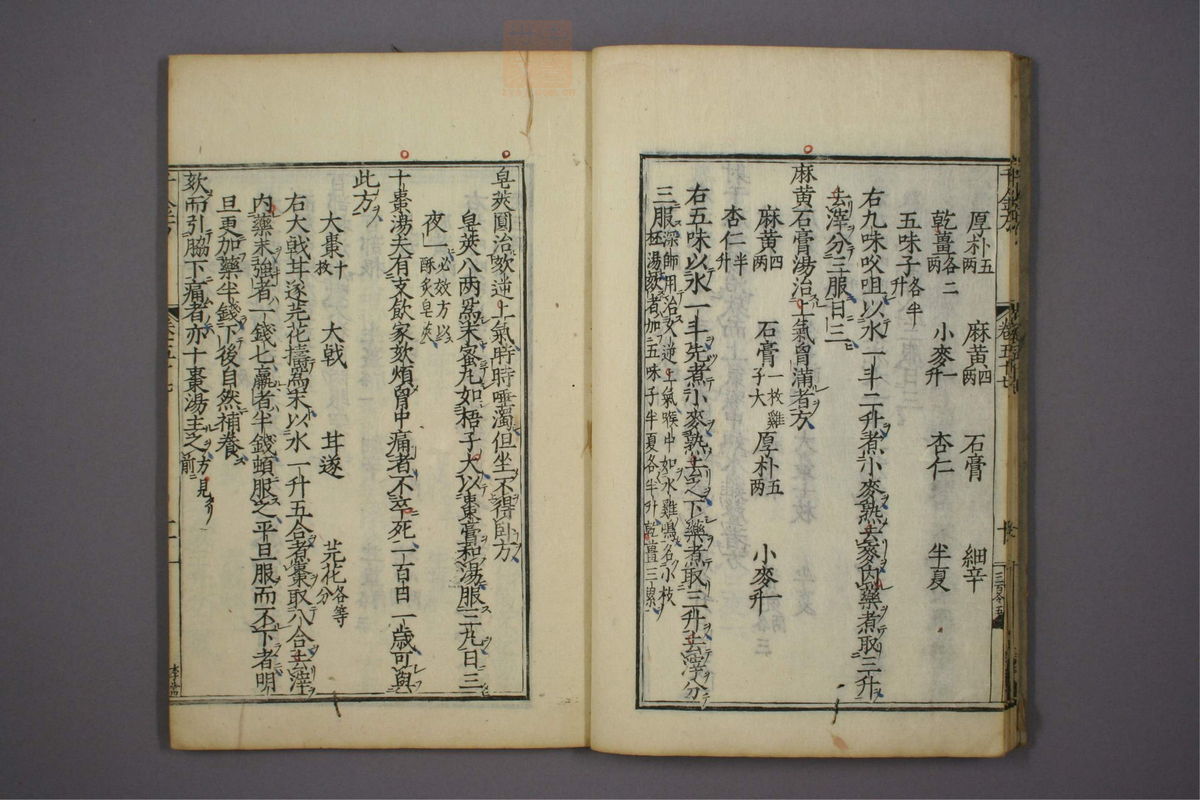 厚朴五兩 麻黃四兩 石膏 細辛
乾薑各二兩 小麥一升 杏仁 半夏
五味子各半升
右九味㕮咀以水一斗二升煮小麥熟去麥內藥煮取三升
去滓分三服日三
麻黃石膏湯治上氣胷滿者方
麻黃四兩 石膏一枚雞子大 厚朴五兩 小麥一升
杏仁半升
右五味以水一斗先煮小麥熟去之下藥煮取三升去滓分
三服深師用治欬逆上氣喉中如水雞鳴名小投
杯湯欬者加五味子半夏各半升乾薑三累
皂莢圓治欬逆上氣時時唾濁但坐不得卧方
皂莢八兩爲末蜜丸如梧子大以棗膏和湯服三丸日三
夜一必効方以
酥炙皂莢
十棗湯夫有支飮家欬煩胷中痛者不卒死一百日一歲可與
此方
大棗十枚 大戟 甘遂 芫花各等分
右大戟甘遂芫花擣爲末以水一升五合煮棗取八合去滓
內藥末強者一錢匕羸者半錢頓服之平旦服而不下者明
旦更加藥半錢下後自然補養
欬而引脇下痛者亦十棗湯主之方見前